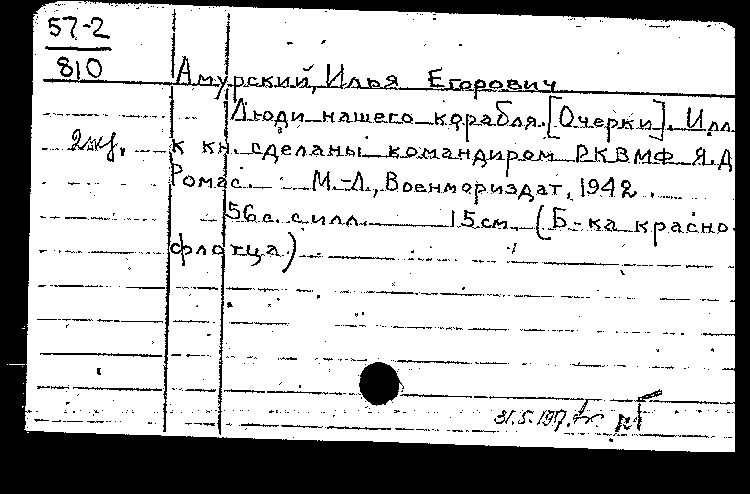 57-2
810
Амурский, Илья Егорович
Люди нашего корабля. [Очерки]. Илл
2 экз.
к кн. сделаны командиром РКВМФ Я.Д
Ромас. М.-Л., Военмориздат, 1942.
56 с. с илл. 15 см. (Б-ка красно-
флотца)